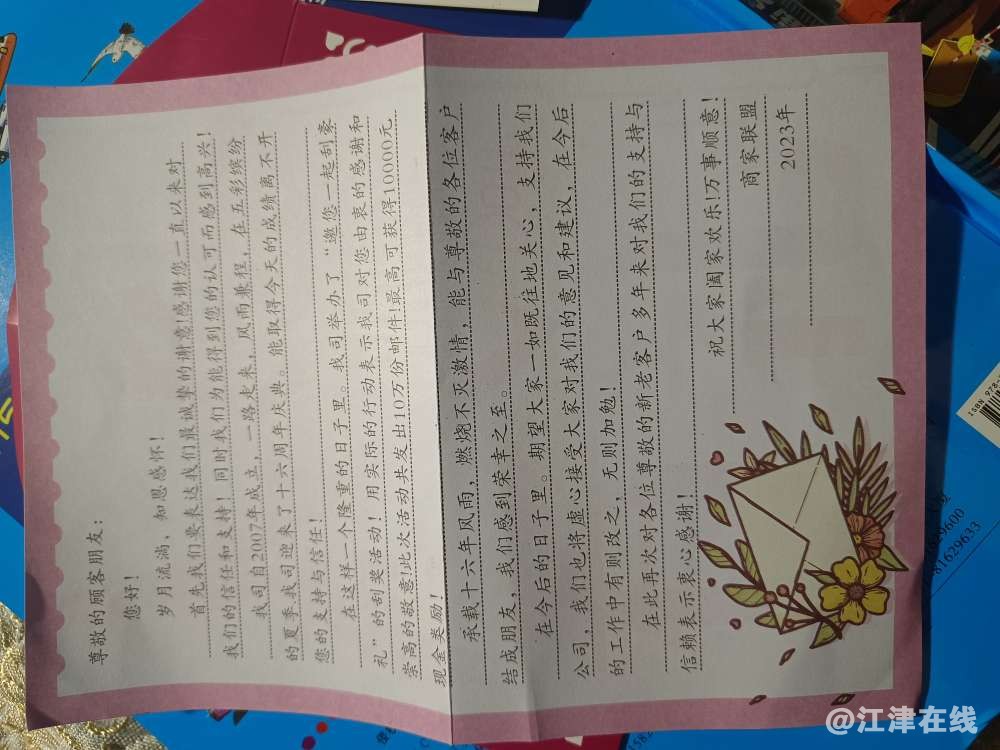 尊敬的顾客朋友：
您好！
岁月流淌，知恩感怀！
首先我们要表达我们最诚挚的谢意！感谢您一直以来对
我们的信任和支持！同时我们为能得到您的认可而感到高兴！
我司自2007年成立，一路走来，风雨兼程，在五彩缤纷
的夏季我司迎来了十六周年庆典。能取得今天的成绩离不开
您的支持与信任！
在这样一个隆重的日子里。我司举办了“邀您一起刮豪
礼”的刮奖活动！用实际的行动表示我司对您由衷的感谢和
崇高的敬意！此次活动共发出10万份邮件！最高可获得10000元
现金奖励！
承载十六年风雨，燃烧不灭激情，能与尊敬的各位客户
结成朋友，我们感到荣幸之至。
在今后的日子里。期望大家一如既往地关心，支持我们
公司，我们也将虚心接受大家对我们的意见和建议，在今后
的工作中有则改之，无则加勉！
在此再次对各位尊敬的新老客户多年来对我们的支持与
信赖表示衷心感谢！
祝大家阖家欢乐！万事顺意！
商家联盟
2023年
81629633
@江津在线